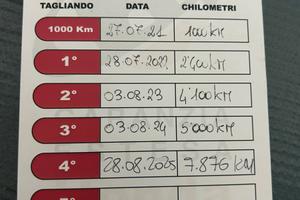 TAGLIANDO DATA CHILOMETRI
1000 Km 27.07.21 1000KM
1° 28.07.2022 2'400KM
2° 03.08.23 4'100KM
3° 03.08.24 5'000KM
4° 28.08.2025 7.876 KM